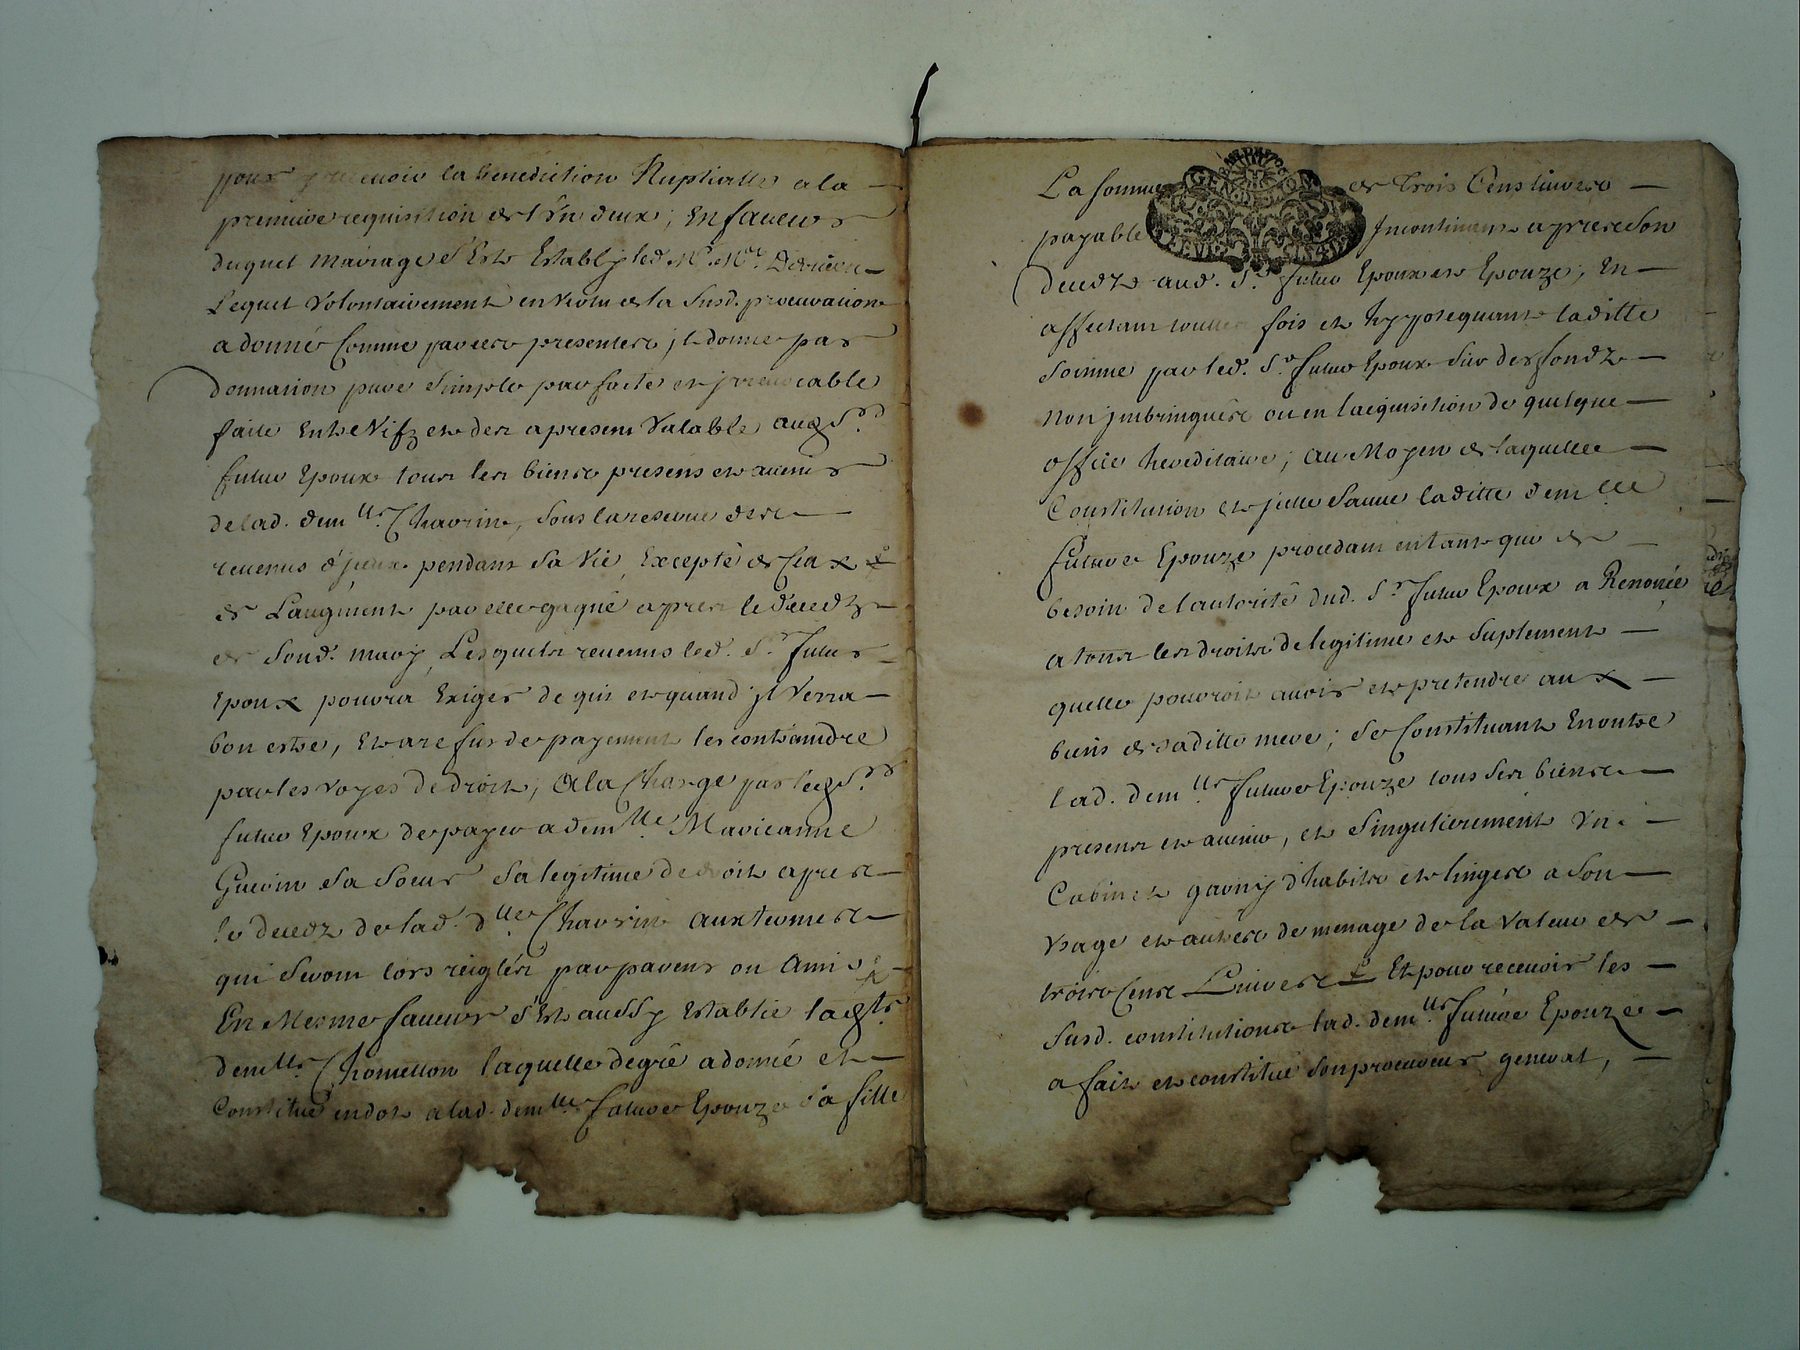 pour recevoir la benediction Nuptialle a la
premiere requisition de l'un deux; En faveur
duquel mariage s'Est Estably led. Mr. Mre.
Lequel Volontairement en vertu de la susd. procuration
a donné Comme par ces presentes jl donne par
donnation pure simple parfaite et jrrevocable
faite Entre Vifz et des apresent Valable aud. Sr.
futur Epoux tous les biens presens et avenir
de lad. demlle. Chavrin, sous la reserve des
revenus d'jceux pendant sa vie Excepté de Ceux
de Laugment par elle gagné apres le decedz
de sond. mary Lesquels revenus led. Sr. futur
Epoux pouvra Exiger de qui et quand jl Verra
bon estre, Et a refus de payement les contraindre
par les voyes de droit; a la Charge par led. Sr.
futur Epoux de payer a demlle Marieanne
Guerin sa soeur sa legitime de droit apres
le decedz de lad. dlle Chavrin aux termes
qui seront lors reiglés par parens ou Amis
En Mesme faveur s'Est aussy Establie lad.
demlle. Chomellon laquelle de gré a donné et
Constitué en dot a lad. demlle. future Epouze sa fille
La somme de trois Cens livres
GENERATION
payable Incontinent apres son
decedz aud. Sr. futur Epoux et Epouze; En
affectant toutte fois et hyppotequant laditte
somme par led. Sr. futur Epoux sur des fondz
non jmbringués ou en l'acquisition de quelque
office hereditaire; au Moyen de laquelle
Constitution et jcelle sauve laditte demlle
future Epouze procedant en tant que de
besoin de l'autorité dud. Sr. futur Epoux a Renoncé
a tous les droits de legitime et suplement
quelle pouvroit avoir et pretendre aux
biens de saditte mere; se Constituant En outre
lad. demlle. future Epouze tous ses biens
presens et avenir, et singulierement un
Cabinet garny d'habits et linges a son
usage et autres de menage de la valeur de
trois Cens Livres Et pour recevoir les
susd. constitutions lad. demlle. future Epouze
a fait et constitué son procureur general,